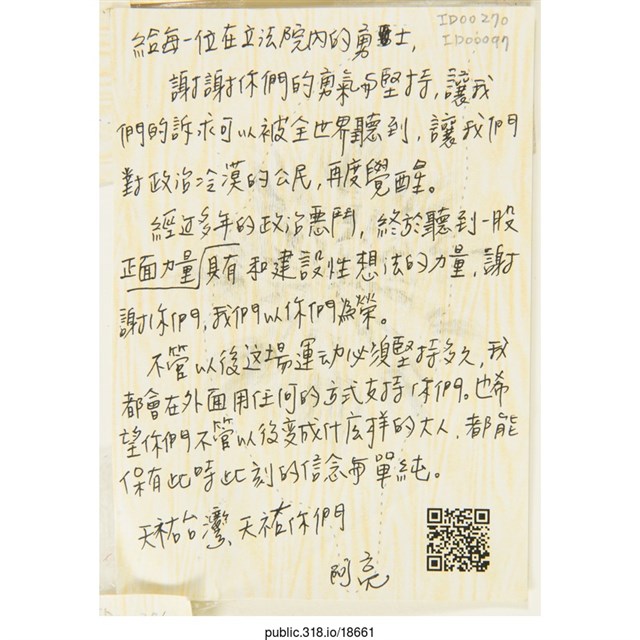 ID00270
ID00097
給每一位在立法院內的勇士,
謝謝你們的勇氣与堅持,讓我
們的訴求可以被全世界聽到,讓我們
對政治冷漠的公民,再度覺醒。
經过多年的政治惡鬥,終於聽到一股
正面力量具有和建設性想法的力量,謝
謝你們,我們以你們為榮。
不管以後这場運动必須堅持多久,我
都會在外面用任何的方式支持你們。也希
望你們不管以後变成什庅样的大人,都能
保有此時此刻的信念与單純。
天祐台灣、天祐你們
阿亮
public.318.io/18661